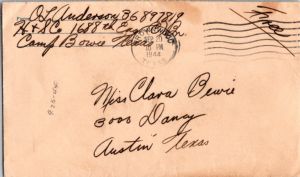 OL Anderson 36897719
H&S Co 1688th Engr. C. Bn.
Camp Bowie Texas
Free
SEP 20
PM
1944
TEXAS
Miss Clara Bewie
3003 Dancy
Austin Texas